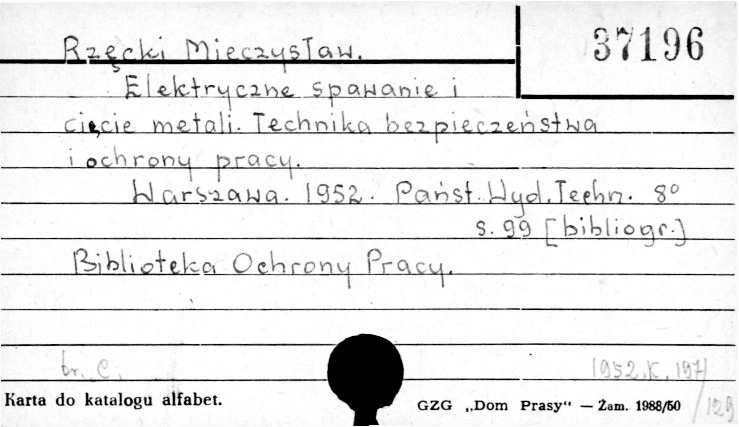 37196
Rzęcki Mieczysław.
Elektryczne spawanie i
cięcie metali. Technika bezpieczeństwa
i ochrony pracy.
Warszawa. 1952. Państ. Wyd. Techn. 8°
s. 99 [bibliogr.]
Biblioteka Ochrony Pracy.
br. C.
1952.K.197/
/129
Karta do katalogu alfabet.
GZG „Dom Prasy“ — Zam. 1988/50